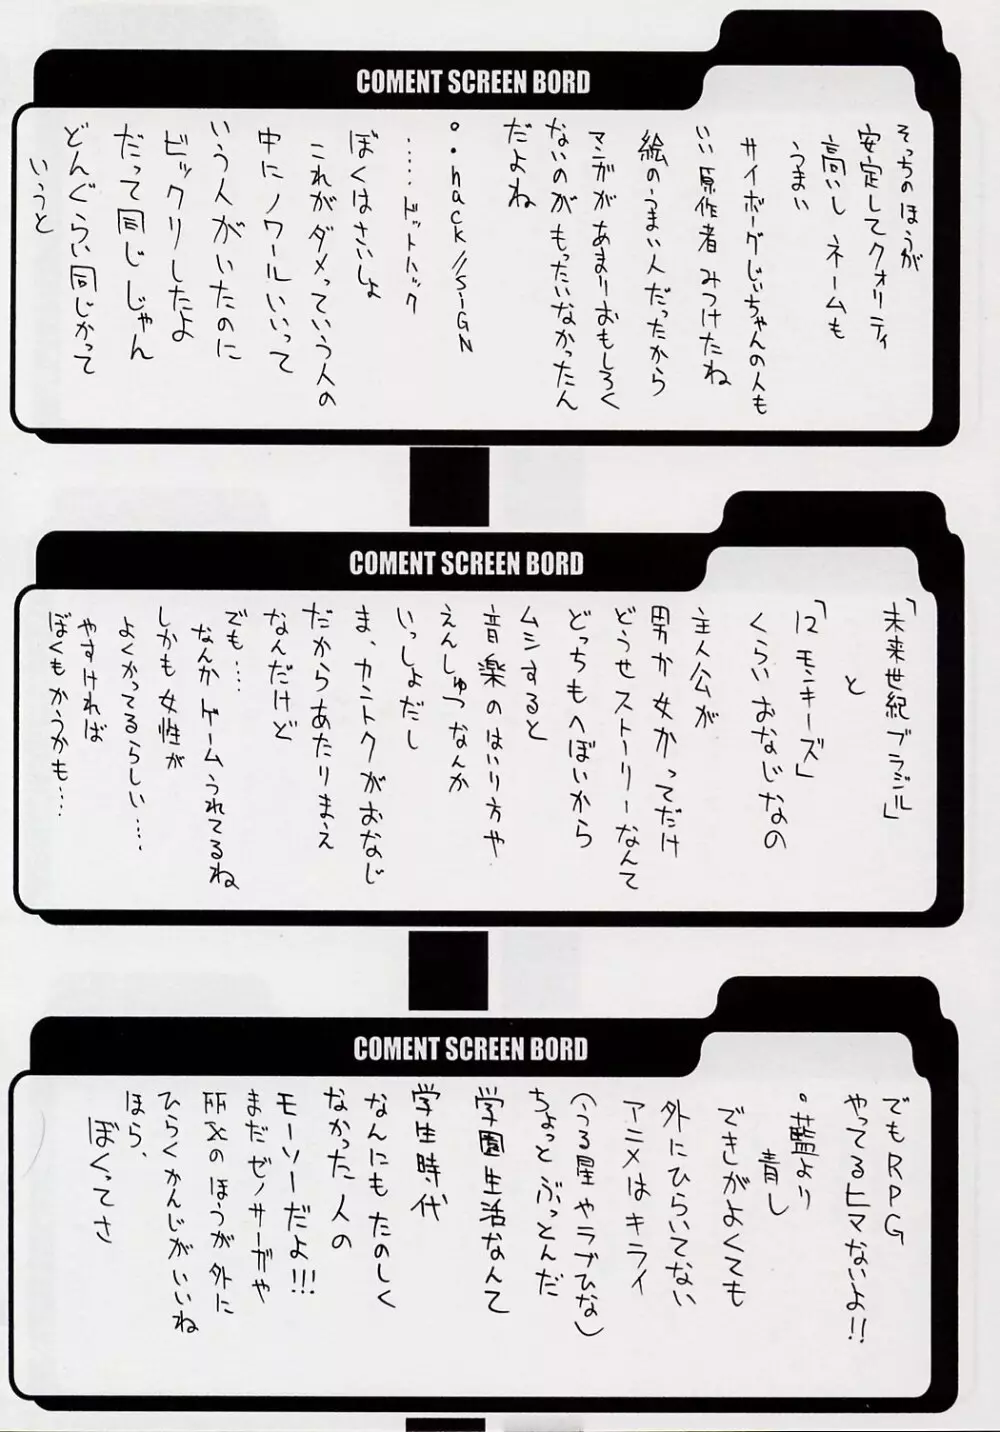 COMENT SCREEN BORD
そっちのほうが
安定してクォリティ
高いし ネームも
うまい
サイボーグじいちゃんの人も
いい原作者みつけたね
絵のうまい人だったから
マンガがあまりおもしろく
ないのがもったいなかったん
だよね
。.hack//SiGN
……ドットハック
ぼくはさいしょ
これがダメっていう人の
中にノワールいいって
いう人がいたのに
ビックリしたよ
だって同じじゃん
どんぐらい同じかって
いうと
COMENT SCREEN BORD
「未来世紀ブラジル」
と
「12モンキーズ」
くらいおなじなの
主人公が
男か女かってだけ
どうせストーリーなんて
どっちもへぼいから
ムシすると
音楽のはいり方や
えんしゅつなんか
いっしょだし
ま、カントクがおなじ
だからあたりまえ
なんだけど
でも…
なんかゲームうれてるね
しかも女性が
よくかってるらしい…．
やすければ
ぼくもかうかも…．
COMENT SCREEN BORD
でもRPG
やってるヒマないよ!!
。藍より
青し
できがよくても
外にひらいてない
アニメはキライ
(うる星やラブひな)
ちょっとぶっとんだ
学園生活なんて
学生時代
なんにもたのしく
なかった人の
モーソーだよ!!!
まだゼノサーガや
のほうが外に
ひらくかんじがいいね
ほら、
ぼくってさ